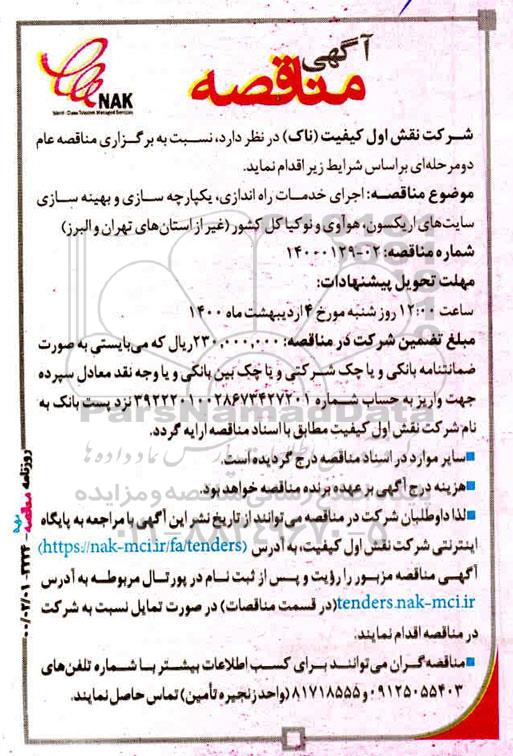 آگهی
مناقصه
NAK
World - Class Telecom Managed Services
شرکت نقش اول کیفیت (ناک) در نظر دارد، نسبت به برگزاری مناقصه عام
دومرحله‌ای براساس شرایط زیر اقدام نماید.
موضوع مناقصه: اجرای خدمات راه اندازی، یکپارچه سازی و بهینه سازی
سایت‌های اریکسون، هوآوی و نوکیا کل کشور (غیر از استان‌های تهران و البرز)
شماره مناقصه: ۰۲-۰۱۲۹-۱۴۰۰
مهلت تحویل پیشنهادات:
ساعت ۱۲:۰۰ روز شنبه مورخ ۴ اردیبهشت ماه ۱۴۰۰
مبلغ تضمین شرکت در مناقصه: ۲۳۰,۰۰۰,۰۰۰ ریال که می‌بایستی به صورت
ضمانتنامه بانکی و یا چک شرکتی و یا چک بین بانکی و یا وجه نقد معادل سپرده
جهت واریز به حساب شماره ۳۹۲۲۲۰۱۰۰۲۸۶۷۳۴۲۷۲۰۱ نزد پست بانک به
نام شرکت نقش اول کیفیت مطابق با اسناد مناقصه ارایه گردد.
■سایر موارد در اسناد مناقصه درج گردیده است.
■هزینه درج آگهی بر عهده برنده مناقصه خواهد بود.
■لذا داوطلبان شرکت در مناقصه می‌توانند از تاریخ نشر این آگهی با مراجعه به پایگاه
اینترنتی شرکت نقش اول کیفیت، به آدرس (https://nak-mci.ir/fa/tenders)
آگهی مناقصه مزبور را رؤیت و پس از ثبت نام در پورتال مربوطه به آدرس
tenders.nak-mci.ir (در قسمت مناقصات) در صورت تمایل نسبت به شرکت
در مناقصه اقدام نمایند.
■مناقصه‌گران می‌توانند برای کسب اطلاعات بیشتر با شماره تلفن‌های
۰۹۱۲۵۰۵۵۴۰۳ و ۸۱۷۱۸۵۵۵ (واحد زنجیره تأمین) تماس حاصل نمایند.
روزنامه مناقصه مزایده -۳۲۲۴- ۰۰/۰۲/۰۱
ParsNamadData
پایگاه اطلاع رسانی مناقصه و مزایده
۰۲۱-۸۸۳۴۹۶۷۰-۵